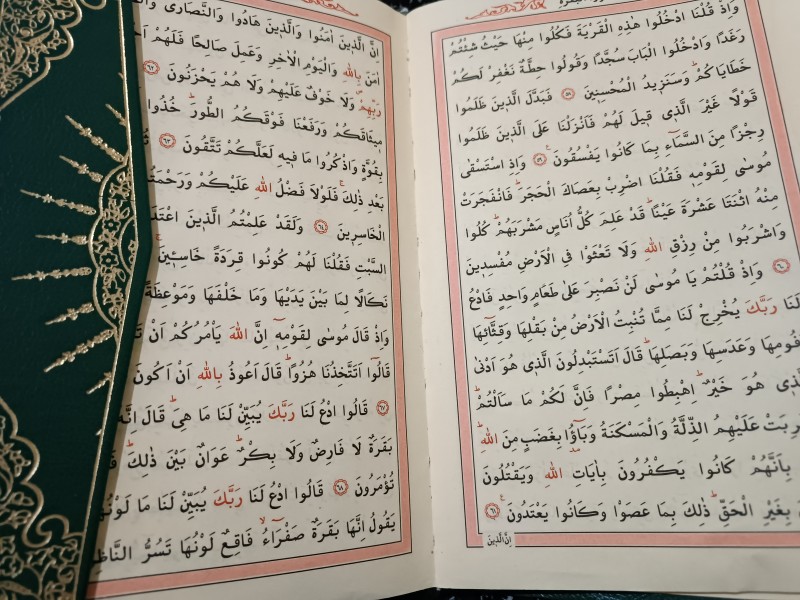 وَاِذْ قُلْنَا ادْخُلُوا هٰذِهِ الْقَرْيَةَ فَكُلُوا مِنْهَا حَيْثُ شِئْتُمْ
رَغَدًا وَادْخُلُوا الْبَابَ سُجَّدًا وَقُولُوا حِطَّةٌ نَغْفِرْ لَكُمْ
خَطَايَاكُمْ وَسَنَزٖيدُ الْمُحْسِنٖينَ ﴿٥٨﴾ فَبَدَّلَ الَّذٖينَ ظَلَمُوا
قَوْلًا غَيْرَ الَّذٖى قٖيلَ لَهُمْ فَاَنْزَلْنَا عَلَى الَّذٖينَ ظَلَمُوا
رِجْزًا مِنَ السَّمَٓاءِ بِمَا كَانُوا يَفْسُقُونَ ﴿٥٩﴾ وَاِذِ اسْتَسْقٰى
مُوسٰى لِقَوْمِهٖ فَقُلْنَا اضْرِبْ بِعَصَاكَ الْحَجَرَ فَانْفَجَرَتْ
مِنْهُ اثْنَتَا عَشْرَةَ عَيْنًا قَدْ عَلِمَ كُلُّ اُنَاسٍ مَشْرَبَهُمْ كُلُوا
وَاشْرَبُوا مِنْ رِزْقِ اللّٰهِ وَلَا تَعْثَوْا فِى الْاَرْضِ مُفْسِدٖينَ
﴿٦٠﴾ وَاِذْ قُلْتُمْ يَا مُوسٰى لَنْ نَصْبِرَ عَلٰى طَعَامٍ وَاحِدٍ فَادْعُ
لَنَا رَبَّكَ يُخْرِجْ لَنَا مِمَّا تُنْبِتُ الْاَرْضُ مِنْ بَقْلِهَا وَقِثَّٓائِهَا
وَفُومِهَا وَعَدَسِهَا وَبَصَلِهَا قَالَ اَتَسْتَبْدِلُونَ الَّذٖى هُوَ اَدْنٰى
هُوَ خَيْرٌ اِهْبِطُوا مِصْرًا فَاِنَّ لَكُمْ مَا سَاَلْتُمْ
عَلَيْهِمُ الذِّلَّةُ وَالْمَسْكَنَةُ وَبَٓاؤُ۫ بِغَضَبٍ مِنَ اللّٰهِ
بِاَنَّهُمْ كَانُوا يَكْفُرُونَ بِاٰيَاتِ اللّٰهِ وَيَقْتُلُونَ
بِغَيْرِ الْحَقِّ ذٰلِكَ بِمَا عَصَوْا وَكَانُوا يَعْتَدُونَ ﴿٦١﴾
اِنَّ الَّذٖينَ
اِنَّ الَّذٖينَ اٰمَنُوا وَالَّذٖينَ هَادُوا وَالنَّصَارٰى
اٰمَنَ بِاللّٰهِ وَالْيَوْمِ الْاٰخِرِ وَعَمِلَ صَالِحًا فَلَهُمْ
رَبِّهِمْ وَلَا خَوْفٌ عَلَيْهِمْ وَلَا هُمْ يَحْزَنُونَ ﴿٦٢﴾
مٖيثَاقَكُمْ وَرَفَعْنَا فَوْقَكُمُ الطُّورَ خُذُوا
بِقُوَّةٍ وَاذْكُرُوا مَا فٖيهِ لَعَلَّكُمْ تَتَّقُونَ ﴿٦٣﴾
بَعْدِ ذٰلِكَ فَلَوْلَا فَضْلُ اللّٰهِ عَلَيْكُمْ وَرَحْمَتُهُ
الْخَاسِرٖينَ ﴿٦٤﴾ وَلَقَدْ عَلِمْتُمُ الَّذٖينَ
السَّبْتِ فَقُلْنَا لَهُمْ كُونُوا قِرَدَةً خَاسِـٖٔينَ
نَكَالًا لِمَا بَيْنَ يَدَيْهَا وَمَا خَلْفَهَا وَمَوْعِظَةً
وَاِذْ قَالَ مُوسٰى لِقَوْمِهٖٓ اِنَّ اللّٰهَ يَاْمُرُكُمْ اَنْ
قَالُٓوا اَتَتَّخِذُنَا هُزُوًا قَالَ اَعُوذُ بِاللّٰهِ اَنْ اَكُونَ
﴿٦٧﴾ قَالُوا ادْعُ لَنَا رَبَّكَ يُبَيِّنْ لَنَا مَا هِىَ قَالَ اِنَّهُ
بَقَرَةٌ لَا فَارِضٌ وَلَا بِكْرٌ عَوَانٌ بَيْنَ ذٰلِكَ
تُؤْمَرُونَ ﴿٦٨﴾ قَالُوا ادْعُ لَنَا رَبَّكَ يُبَيِّنْ لَنَا مَا لَوْنُهَا
يَقُولُ اِنَّهَا بَقَرَةٌ صَفْرَٓاءُ فَاقِعٌ لَوْنُهَا تَسُرُّ